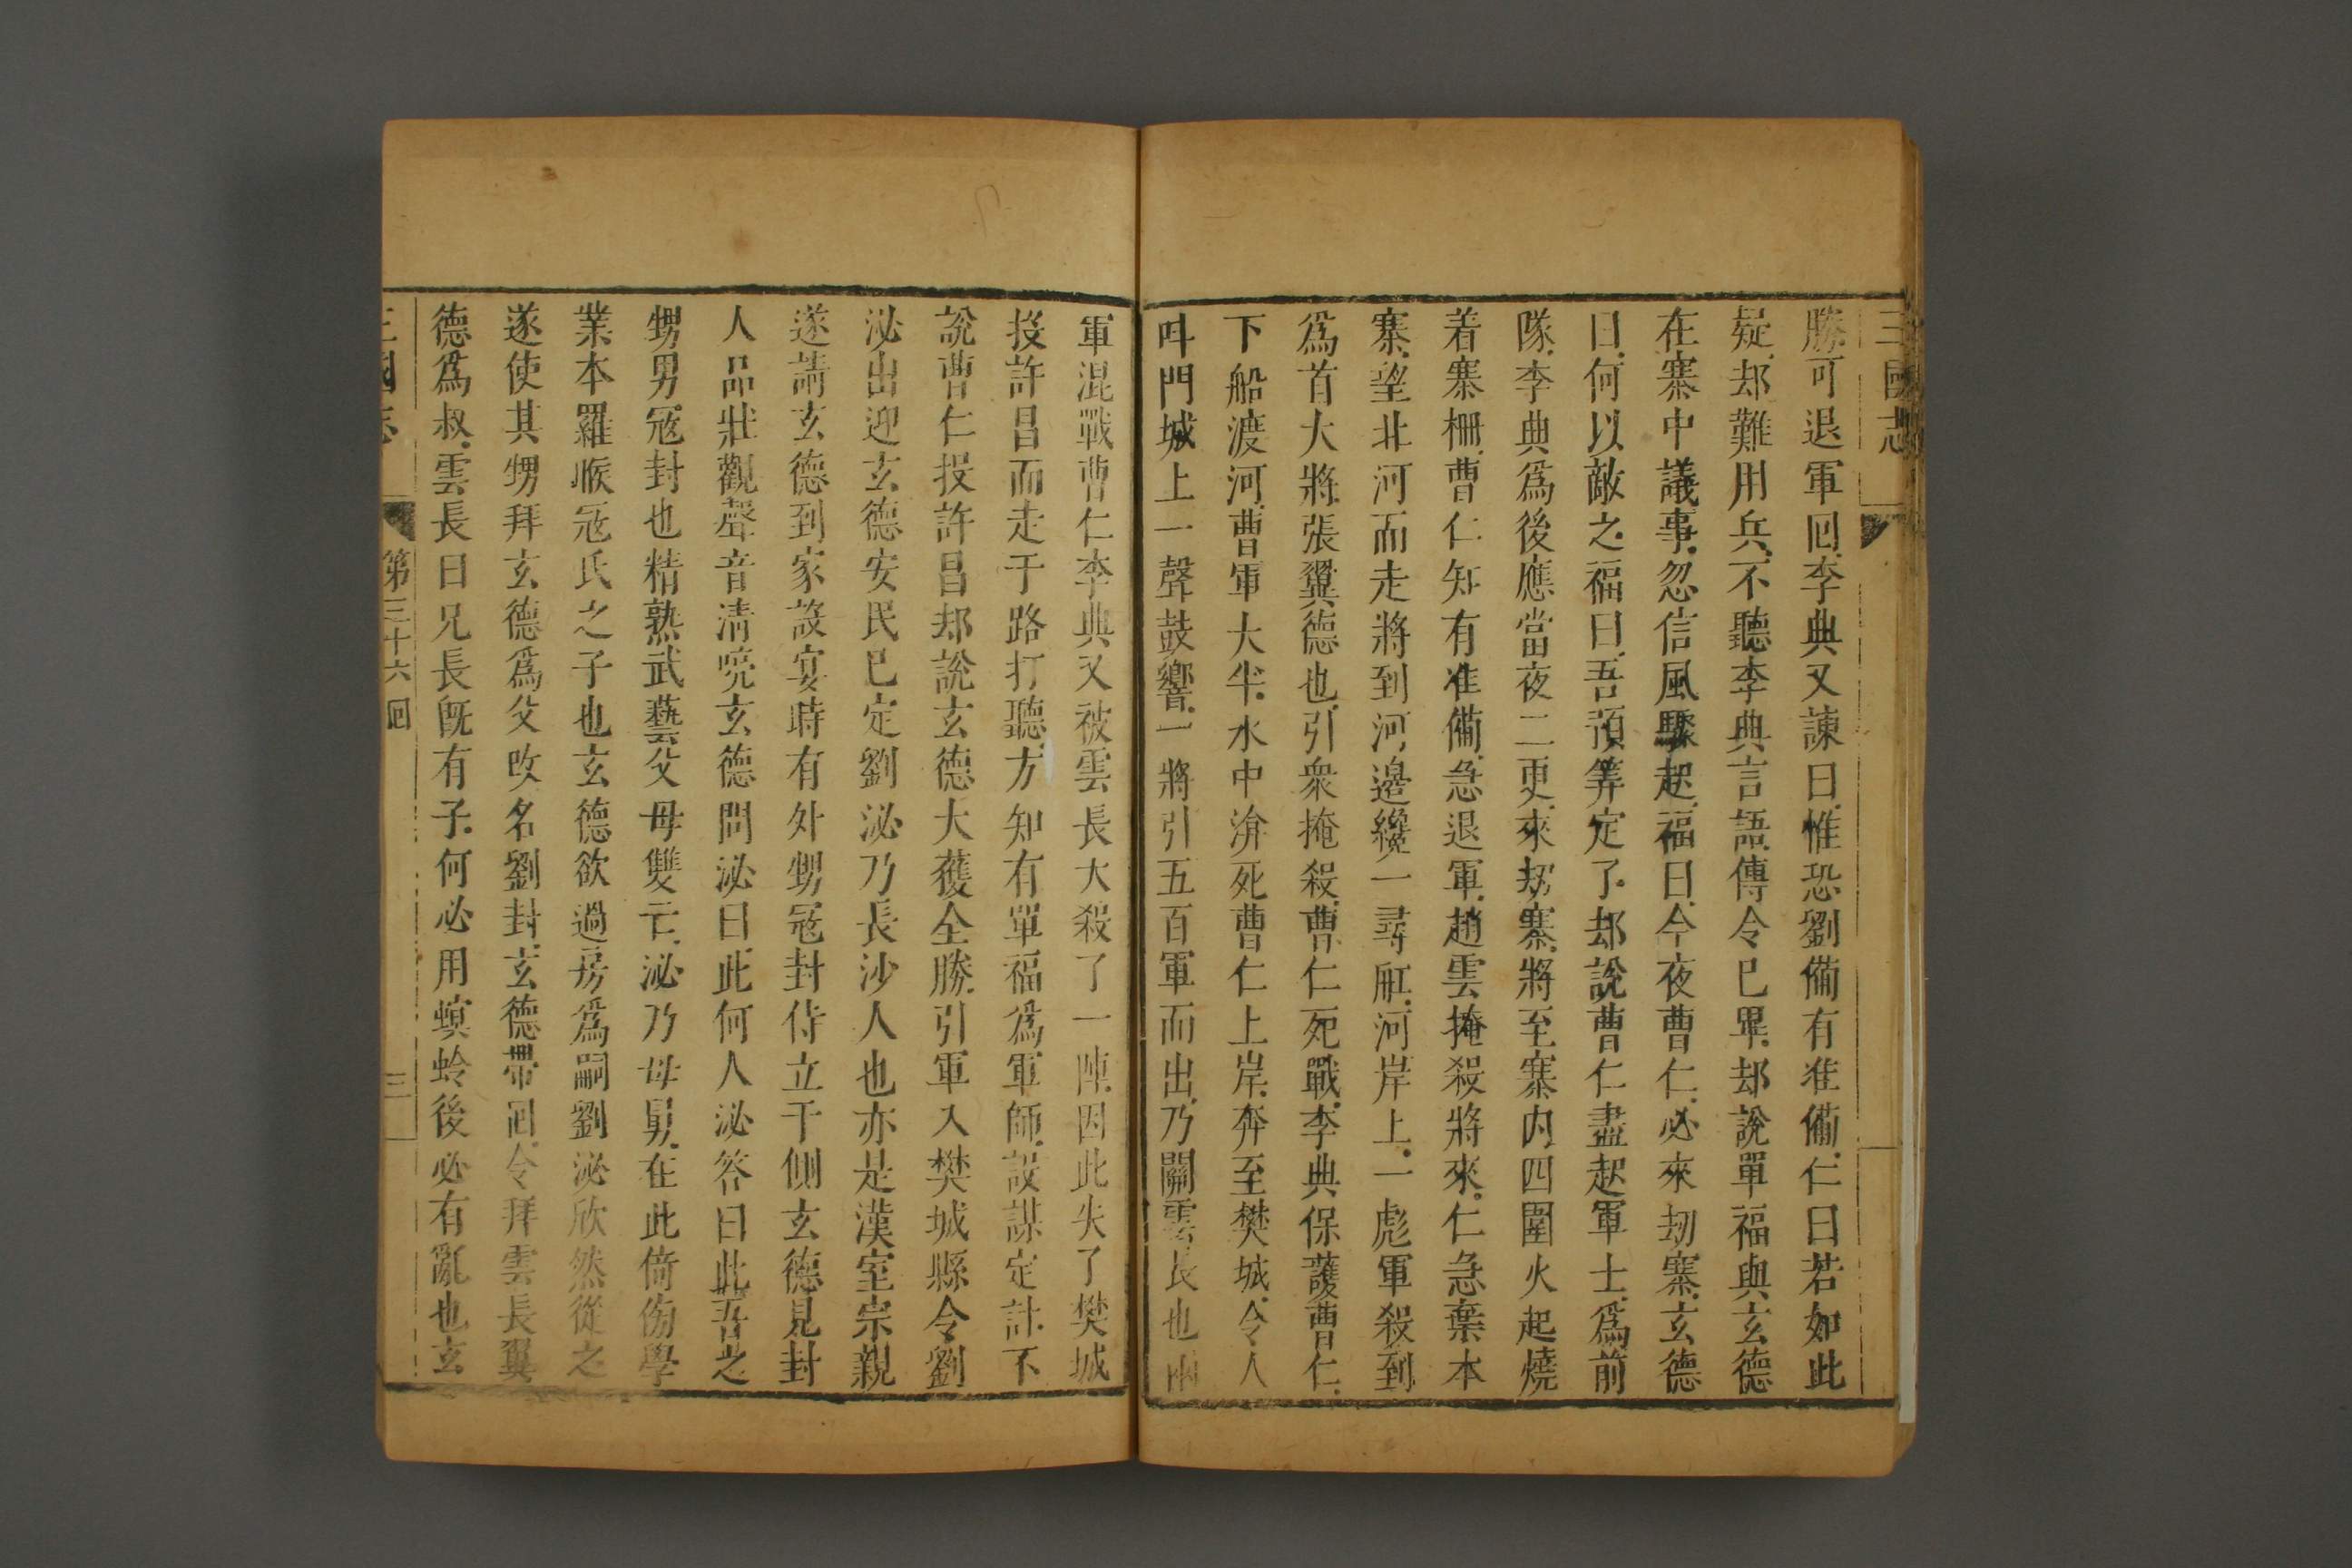 三國志
勝可退軍回李典又諫曰惟恐劉備有准備仁曰若如此
疑却難用兵不聽李典言語傳令已畢却說單福與玄德
在寨中議事忽信風驟起福曰今夜曹仁必來刼寨玄德
曰何以敵之福曰吾預筭定了却說曹仁盡起軍士爲前
隊李典爲後應當夜二更來刼寨將至寨內四圍火起燒
着寨柵曹仁知有准備急退軍趙雲掩殺將來仁急棄本
寨望北河而走將到河邊纔一尋舡河岸上一彪軍殺到
爲首大將張翼德也引衆掩殺曹仁死戰李典保護曹仁
下船渡河曹軍大半水中渰死曹仁上岸奔至樊城令人
呌門城上一聲鼓響一將引五百軍而出乃關雲長也兩
軍混戰曹仁李典又被雲長大殺了一陣因此失了樊城
投許昌而走于路打聽方知有單福爲軍師設謀定計不
說曹仁投許昌却說玄德大獲全勝引軍入樊城縣令劉
泌出迎玄德安民已定劉泌乃長沙人也亦是漢室宗親
遂請玄德到家設宴時有外甥冦封侍立于側玄德見封
人品壯觀聲音清喨玄德問泌曰此何人泌答曰此吾之
甥男冦封也精熟武藝父母雙亡泌乃母舅在此倚傍學
業本羅㬋冦氏之子也玄德欲過房爲嗣劉泌欣然從之
遂使其甥拜玄德爲父改名劉封玄德帶回令拜雲長翼
德爲叔雲長曰兄長旣有子何必用螟蛉後必有亂也玄
三國志 第三十六回 三